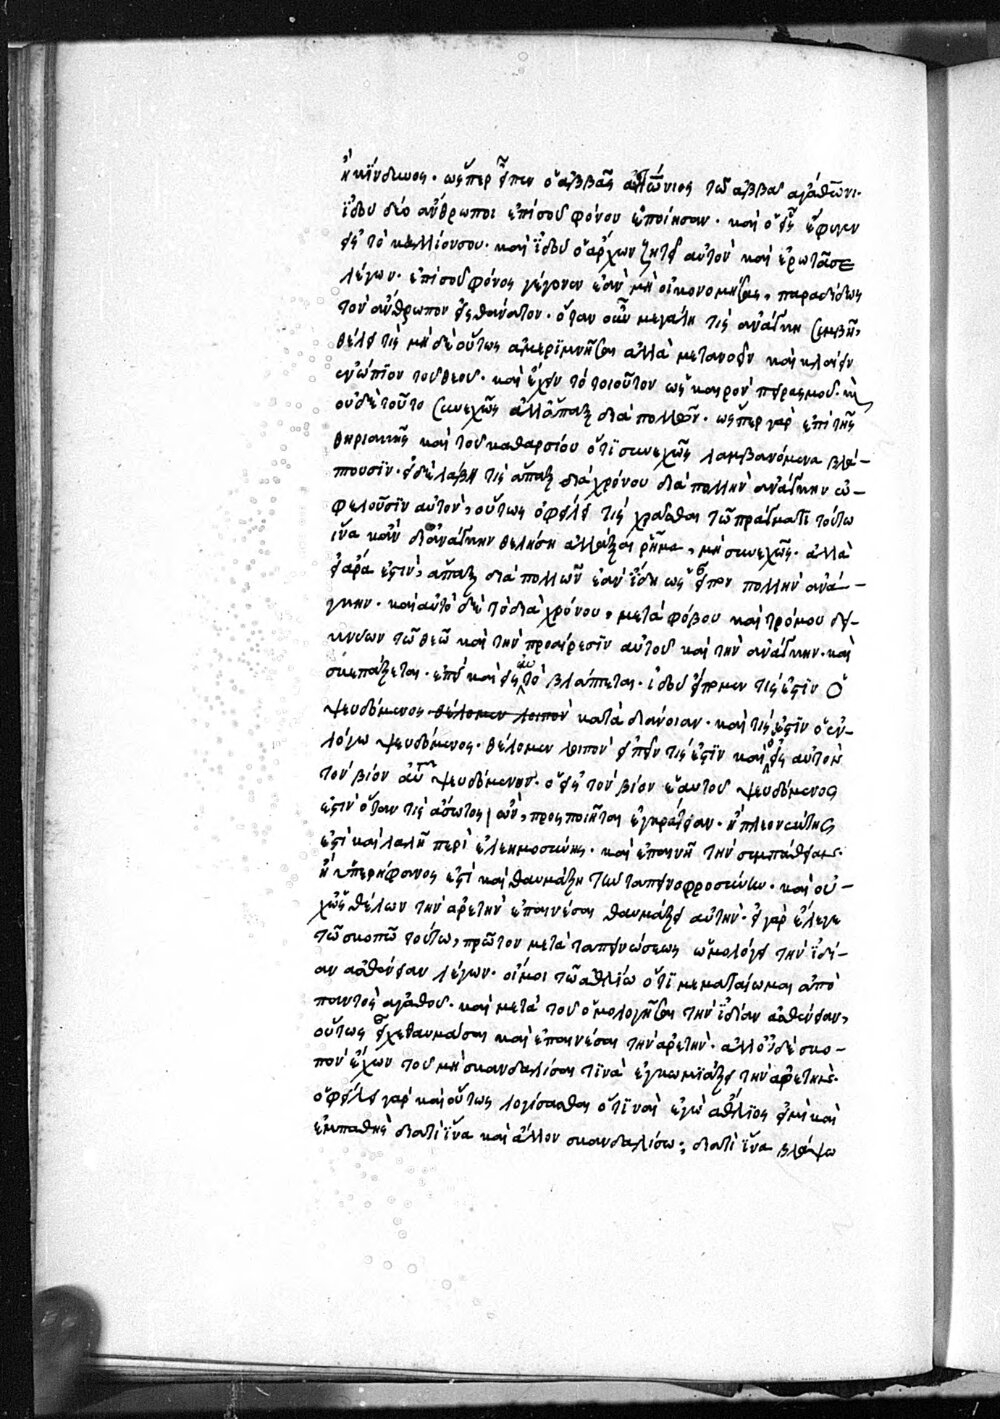 ἢ κίνδυνος· ὥσπερ εἶπεν ὁ ἀββᾶς ἀντώνιος τῶ ἀββᾶ ἀγάθωνι·
ἰδοὺ δύο ἄνθρωποι ἐπί σου φόνον ἐποίησαν· καὶ ὁ εἷς ἔφυγεν
εἰς τὸ κελλίον σου· καὶ ἰδοὺ ὁ ἄρχων ζητεῖ αὐτὸν καὶ ἐρωτᾶ σε
λέγων· ἐπί σου φόνος γέγονεν ἐὰν μὴ οἰκονομήσης, παραδίδως
τὸν ἄνθρωπον εἰς θάνατον· ὅταν οὖν μεγάλη τις ἀνάγκη συμβῆ,
θέλει τὶς μὴ δὲ οὕτως ἀμεριμνῆσαι ἀλλὰ μετανοεῖν καὶ κλαίειν
ἐνώπιον τοῦ θεοῦ· καὶ ἔχειν τὸ τοιοῦτον ὡς καιρὸν πειρασμοῦ· καὶ
οὐδὲ τοῦτο συνεχῶς ἀλλ' ἅπαξ διὰ πολλῶν· ὥσπερ γὰρ ἐπὶ τῆς
θηριακῆς καὶ τοῦ καθαρσίου ὅτι συνεχῶς λαμβανόμενα βλά-
πτουσιν· εἰ δὲ λάβη τις ἅπαξ διὰ χρόνου διὰ πολλὴν ἀνάγκην ὠ-
φελοῦσιν αὐτόν, οὕτως ὀφείλει τις χρᾶσθαι τῶ πράγματι τούτω
ἵνα κἂν δι' ἀνάγκην θελήση ἀλλάξαι ῥῆμα, μὴ συνεχῶς· ἀλλὰ
εἰ ἄρα ἐστίν, ἅπαξ διὰ πολλῶν ἐὰν ἴδη ὡς εἶπον πολλὴν ἀνά-
γκην· καὶ αὐτὸ δὲ τὸ διὰ χρόνου, μετὰ φόβου καὶ τρόμου δει-
κνύων τῶ θεῶ καὶ τὴν προαίρεσιν αὐτοῦ καὶ τὴν ἀνάγκην· καὶ
σκεπάζεται· ἐπεὶ καὶ εἰς αὐτὸ βλάπτεται· ἰδοὺ εἴπομεν τίς ἐστὶν ὁ
ψευδόμενος θέλομεν λοιπὸν κατὰ διάνοιαν· καὶ τίς ἐστὶν ὁ ἐν
λόγω ψευδόμενος· θέλομεν λοιπὸν εἰπεῖν τίς ἐστὶν καὶ ὁ εἰς αὐτὸν
τὸν βίον αὐτοῦ ψευδόμενος· ὁ εἰς τὸν βίον ἑαυτοῦ ψευδόμενος
ἐστὶν ὅταν τις ἄσωτος ὤν, προσποιῆται ἐγκράτειαν· ἢ πλεονέκτης
ἐστὶ καὶ λαλῆ περὶ ἐλεημοσύνης· καὶ ἐπαινῆ τὴν συμπάθειαν·
ἢ ὑπερήφανος ἐστὶ καὶ θαυμάζη τὴν ταπεινοφροσύνην· καὶ οὐ-
χ' ὡς θέλων τὴν ἀρετὴν ἐπαινέσαι θαυμάζει αὐτήν· εἰ γὰρ ἔλεγε
τῶ σκοπῶ τούτω, πρῶτον μετὰ ταπεινώσεως ὡμολόγει τὴν ἰδί-
αν ἀσθένειαν λέγων· οἴμοι τῶ ἀθλίω ὅτι μεματαίωμαι ἀπὸ
παντὸς ἀγαθοῦ· καὶ μετὰ τοῦ ὁμολογῆσαι τὴν ἰδίαν ἀσθένειαν,
οὕτως εἶχε θαυμάσαι καὶ ἐπαινέσαι τὴν ἀρετήν· ἀλλ' οὐδὲ σκο-
πὸν ἔχων τοῦ μὴ σκανδαλίσαι τινὰ ἐγκωμιάζει τὴν ἀρετήν·
ὤφειλε γὰρ καὶ οὕτως λογίσασθαι ὅτι ναὶ ἐγὼ ἄθλιος εἰμὶ καὶ
ἐμπαθὴς διατί ἵνα καὶ ἄλλον σκανδαλίσω; διατί ἵνα βλάψω